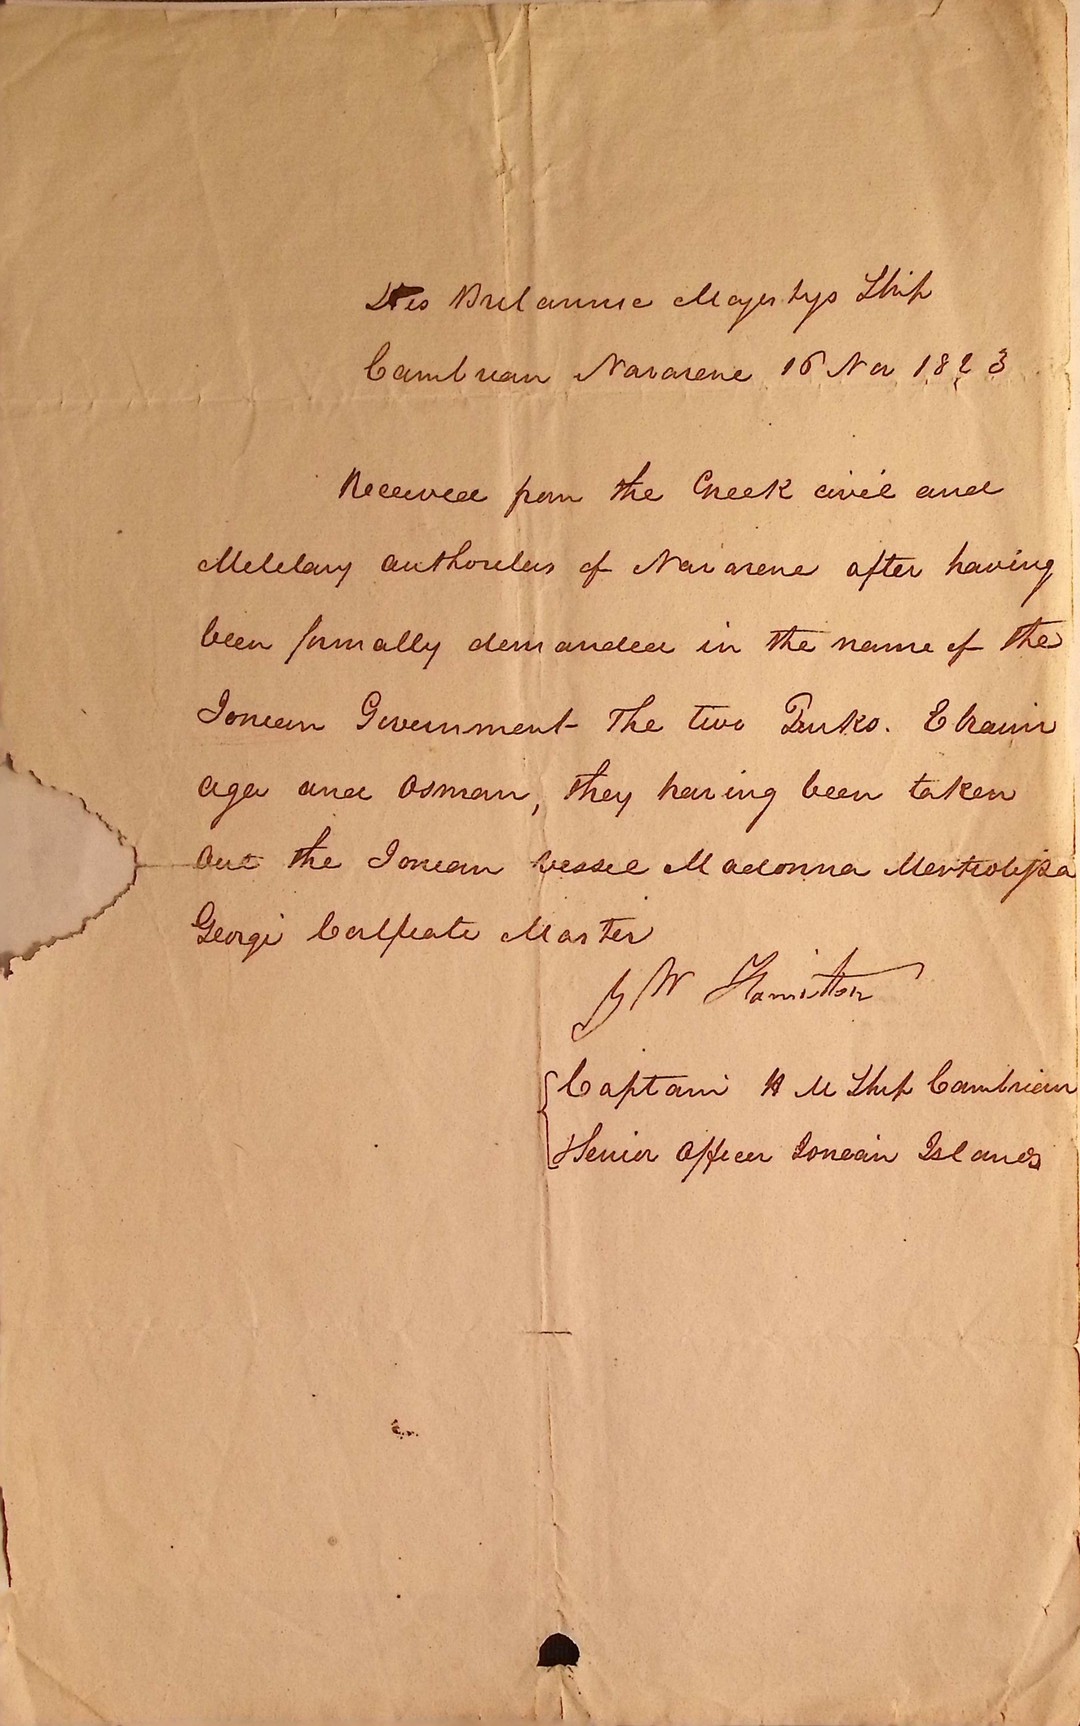 His Britannic Majestys Ship
Cambrian Navarene 16 Nov 1823
Received from the Greek civil and
Military authorities of Navarene after having
been formally demanded in the name of the
Ionian Government The two Turks. Ebraim
aga and Osman, they having been taken
out the Ionian vessel Madonna
Georgi Master
G W Hamilton
Captain H M Ship Cambrian
Senior Officer Ionian Islands